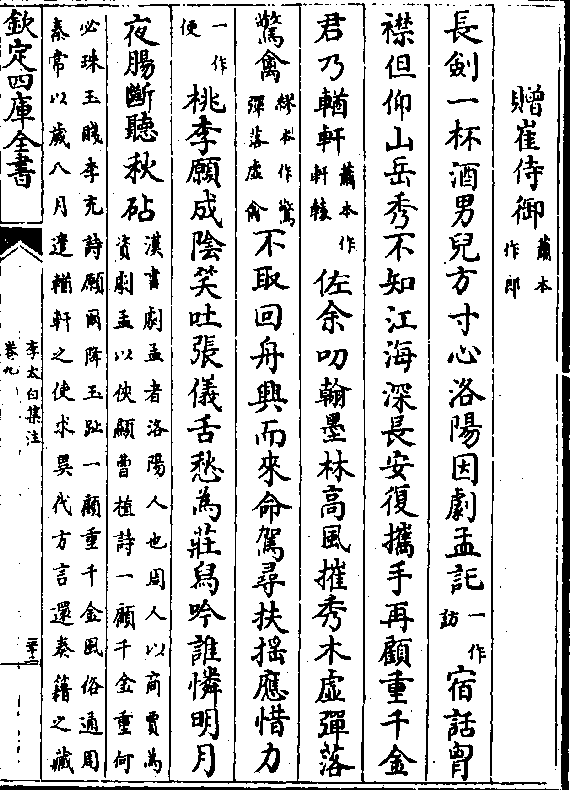 贈崔侍御蕭本作郎
長劍一杯酒男兒方寸心洛陽因劇孟託一作訪宿話胷
襟但仰山岳秀不知江海深長安復攜手再顧重千金
君乃輶軒蕭本作軒轅佐余叨翰墨林高風摧秀木虛彈落
驚禽繆本作驚彈落虛禽不取回舟興而來命駕尋扶搖應惜力
一作便桃李願成陰笑吐張儀舌愁為莊舄吟誰憐明月
夜腸斷聽秋砧
漢書劇孟者洛陽人也周人以商賈為
資劇孟以俠顯曹植詩一顧千金重何
必珠玉賤李充詩願爾降玉趾一顧重千金風俗通周
秦常以歲八月遣輶軒之使求異代方言還奏籍之藏
欽定四庫全書
李太白集注
卷九